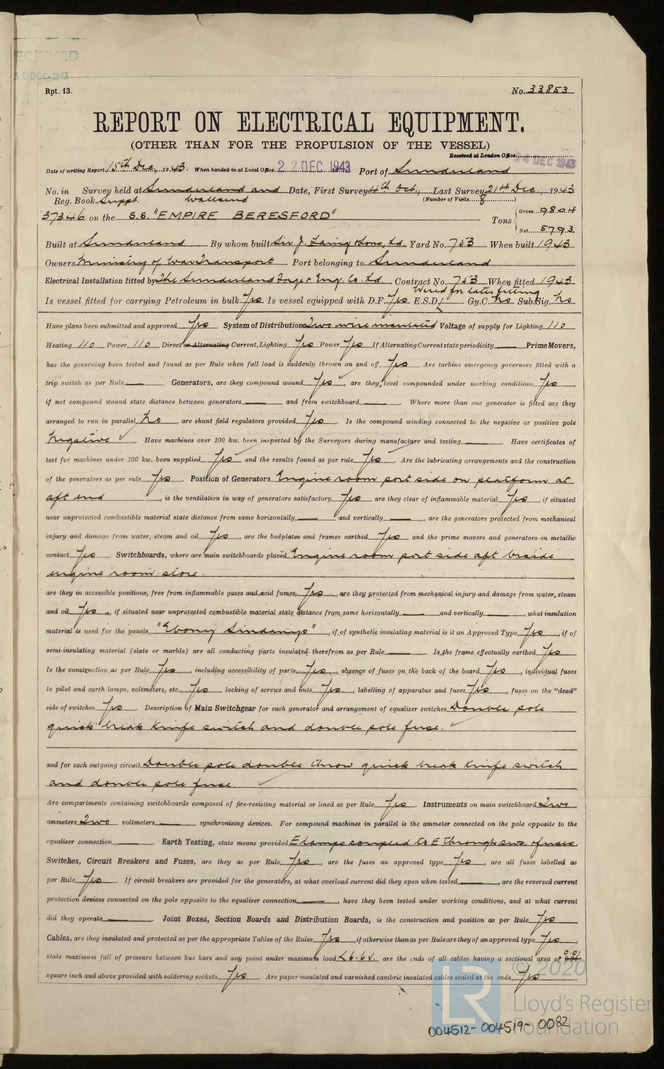 RECEIVED
DEC 1943
Rpt. 13.
No. 33853
REPORT ON ELECTRICAL EQUIPMENT.
(OTHER THAN FOR THE PROPULSION OF THE VESSEL)
Received at London Office 24 DEC 1943
Date of writing Report 15th Dec. 1943 When handed in at Local Office 22 DEC 1943 Port of Sunderland
No. in Survey held at Sunderland and Wallsend Date, First Survey 4th Oct. Last Survey 21st Dec. 1943
Reg. Book. Suppt. (Number of Visits 8)
37346 on the S.S. "EMPIRE BERESFORD" Tons Gross 9804 Net 5793
Built at Sunderland By whom built Sir J. Laing & Sons, Ld. Yard No. 753 When built 1943
Owners Ministry of War Transport Port belonging to Sunderland
Electrical Installation fitted by The Sunderland Forge & Eng. Co. Ld Contract No. 753 When fitted 1943
Is vessel fitted for carrying Petroleum in bulk Yes Is vessel equipped with D.F. Yes E.S.D. Wired for later fitting Gy.C. No Sub.Sig. No
Have plans been submitted and approved Yes System of Distribution Two wire insulated Voltage of supply for Lighting 110
Heating 110 Power 110 Direct or Alternating Current, Lighting Yes Power Yes If Alternating Current state periodicity Prime Movers,
has the governing been tested and found as per Rule when full load is suddenly thrown on and off Yes Are turbine emergency governors fitted with a
trip switch as per Rule Generators, are they compound wound Yes, are they level compounded under working conditions Yes,
if not compound wound state distance between generators and from switchboard Where more than one generator is fitted are they
arranged to run in parallel No, are shunt field regulators provided Yes Is the compound winding connected to the negative or positive pole
Negative Have machines over 100 kw. been inspected by the Surveyors during manufacture and testing Have certificates of
test for machines under 100 kw. been supplied Yes and the results found as per rule Yes Are the lubricating arrangements and the construction
of the generators as per rule Yes Position of Generators Engine room port side on platform at
aft end, is the ventilation in way of generators satisfactory Yes are they clear of inflammable material Yes, if situated
near unprotected combustible material state distance from same horizontally and vertically, are the generators protected from mechanical
injury and damage from water, steam and oil Yes, are the bedplates and frames earthed Yes and the prime movers and generators in metallic
contact Yes Switchboards, where are main switchboards placed Engine room port side aft beside
engine room store.
are they in accessible positions, free from inflammable gases and acid fumes Yes, are they protected from mechanical injury and damage from water, steam
and oil Yes, if situated near unprotected combustible material state distance from same horizontally and vertically, what insulation
material is used for the panels "Ebony Sindanyo", if of synthetic insulating material is it an Approved Type Yes, if of
semi-insulating material (slate or marble) are all conducting parts insulated therefrom as per Rule Is the frame effectually earthed Yes
Is the construction as per Rule Yes including accessibility of parts Yes absence of fuses on the back of the board Yes, individual fuses
to pilot and earth lamps, voltmeters, etc. Yes locking of screws and nuts Yes, labelling of apparatus and fuses Yes, fuses on the "dead"
side of switches Yes Description of Main Switchgear for each generator and arrangement of equaliser switches Double pole
quick break knife switch and double pole fuse.
and for each outgoing circuit Double pole double throw quick break knife switch
and double pole fuse
Are compartments containing switchboards composed of fire-resisting material or lined as per Rule Yes Instruments on main switchboard Two
ammeters Two voltmeters synchronising devices. For compound machines in parallel is the ammeter connected on the pole opposite to the
equaliser connection Earth Testing, state means provided E lamps coupled to E through sws. & fuses
Switches, Circuit Breakers and Fuses, are they as per Rule Yes, are the fuses an approved type Yes, are all fuses labelled as
per Rule Yes If circuit breakers are provided for the generators, at what overload current did they open when tested, are the reversed current
protection devices connected on the pole opposite to the equaliser connection, have they been tested under working conditions, and at what current
did they operate Joint Boxes, Section Boards and Distribution Boards, is the construction and position as per Rule Yes
Cables, are they insulated and protected as per the appropriate Tables of the Rules Yes, if otherwise than as per Rule are they of an approved type Yes
state maximum fall of pressure between bus bars and any point under maximum load L6.6v., are the ends of all cables having a sectional area of 0.01
square inch and above provided with soldering sockets Yes Are paper insulated and varnished cambric insulated cables sealed at the ends Yes
© 2020
LR
Lloyd's Register
Foundation
004512-004519-0082